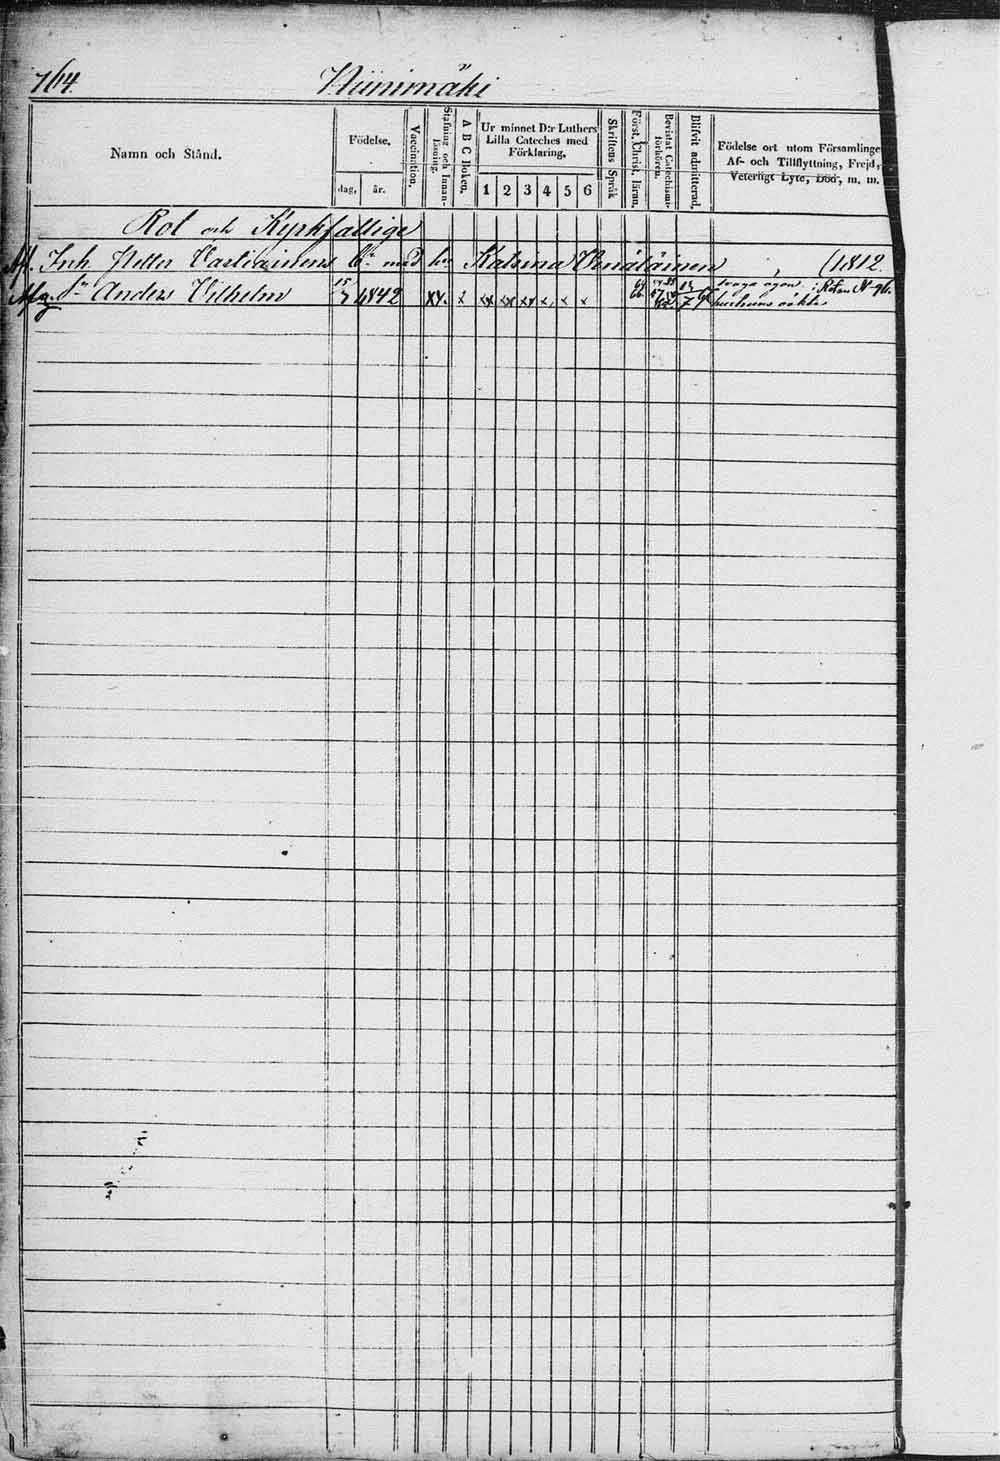 764.
Niinimäki
Namn och Stånd.
Födelse.
dag.
år.
Vaccination.
Stafning och Innanläsning.
A B C Boken.
Ur minnet D:r Luthers
Lilla Cateches med
Förklaring.
1 2 3 4 5 6
Skriftens Språk
Först. Christ. läran.
Bevistat Catechismi-förhören.
Blifvit admitterad.
Födelse ort utom Församlingen
Af- och Tillflyttning, Frejd,
Veterligt Lyte, Död, m. m.
Rot och Kyrkfattige
Inh. Petter Vastiainens med Katrina Venäläinen (1812.
Anders Vilhelm 15/7 1842 xx. x xx xx xx x x x svaga ögon i Roten N 96.